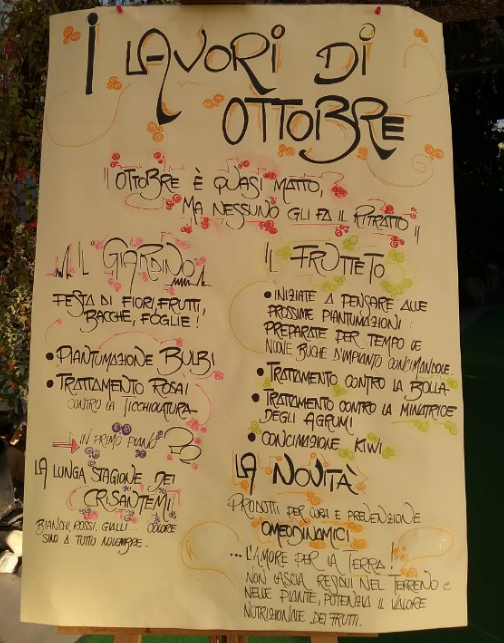 I LAVORI DI
OTTOBRE
"OTTOBRE È QUASI MATTO,
MA NESSUNO GLI FA IL RITRATTO"
IL GIARDINO
FESTA DI FIORI, FRUTTI,
BACCHE, FOGLIE!
• PIANTUMAZIONE BULBI
• TRATTAMENTO ROSAI
CONTRO LA TICCHIOLATURA
IN PRIMO PIANO
LA LUNGA STAGIONE DEI
CRISANTEMI
BIANCHI, ROSSI, GIALLI COLORE
SINO A TUTTO NOVEMBRE.
IL FRUTTETO
• INIZIATE A PENSARE ALLE
PROSSIME PIANTUMAZIONI:
PREPARATE PER TEMPO LE
NUOVE BUCHE D'IMPIANTO CONCIMANDOLE
• TRATTAMENTO CONTRO LA BOLLA
• TRATTAMENTO CONTRO LA MINATRICE
DEGLI AGRUMI
• CONCIMAZIONE KIWI
LA NOVITÀ
PRODOTTI PER CURA E PREVENZIONE
OMEODINAMICI
... L'AMORE PER LA TERRA!
NON LASCIA RESIDUI NEL TERRENO E
NELLE PIANTE, POTENZIA IL VALORE
NUTRIZIONALE DEI FRUTTI.